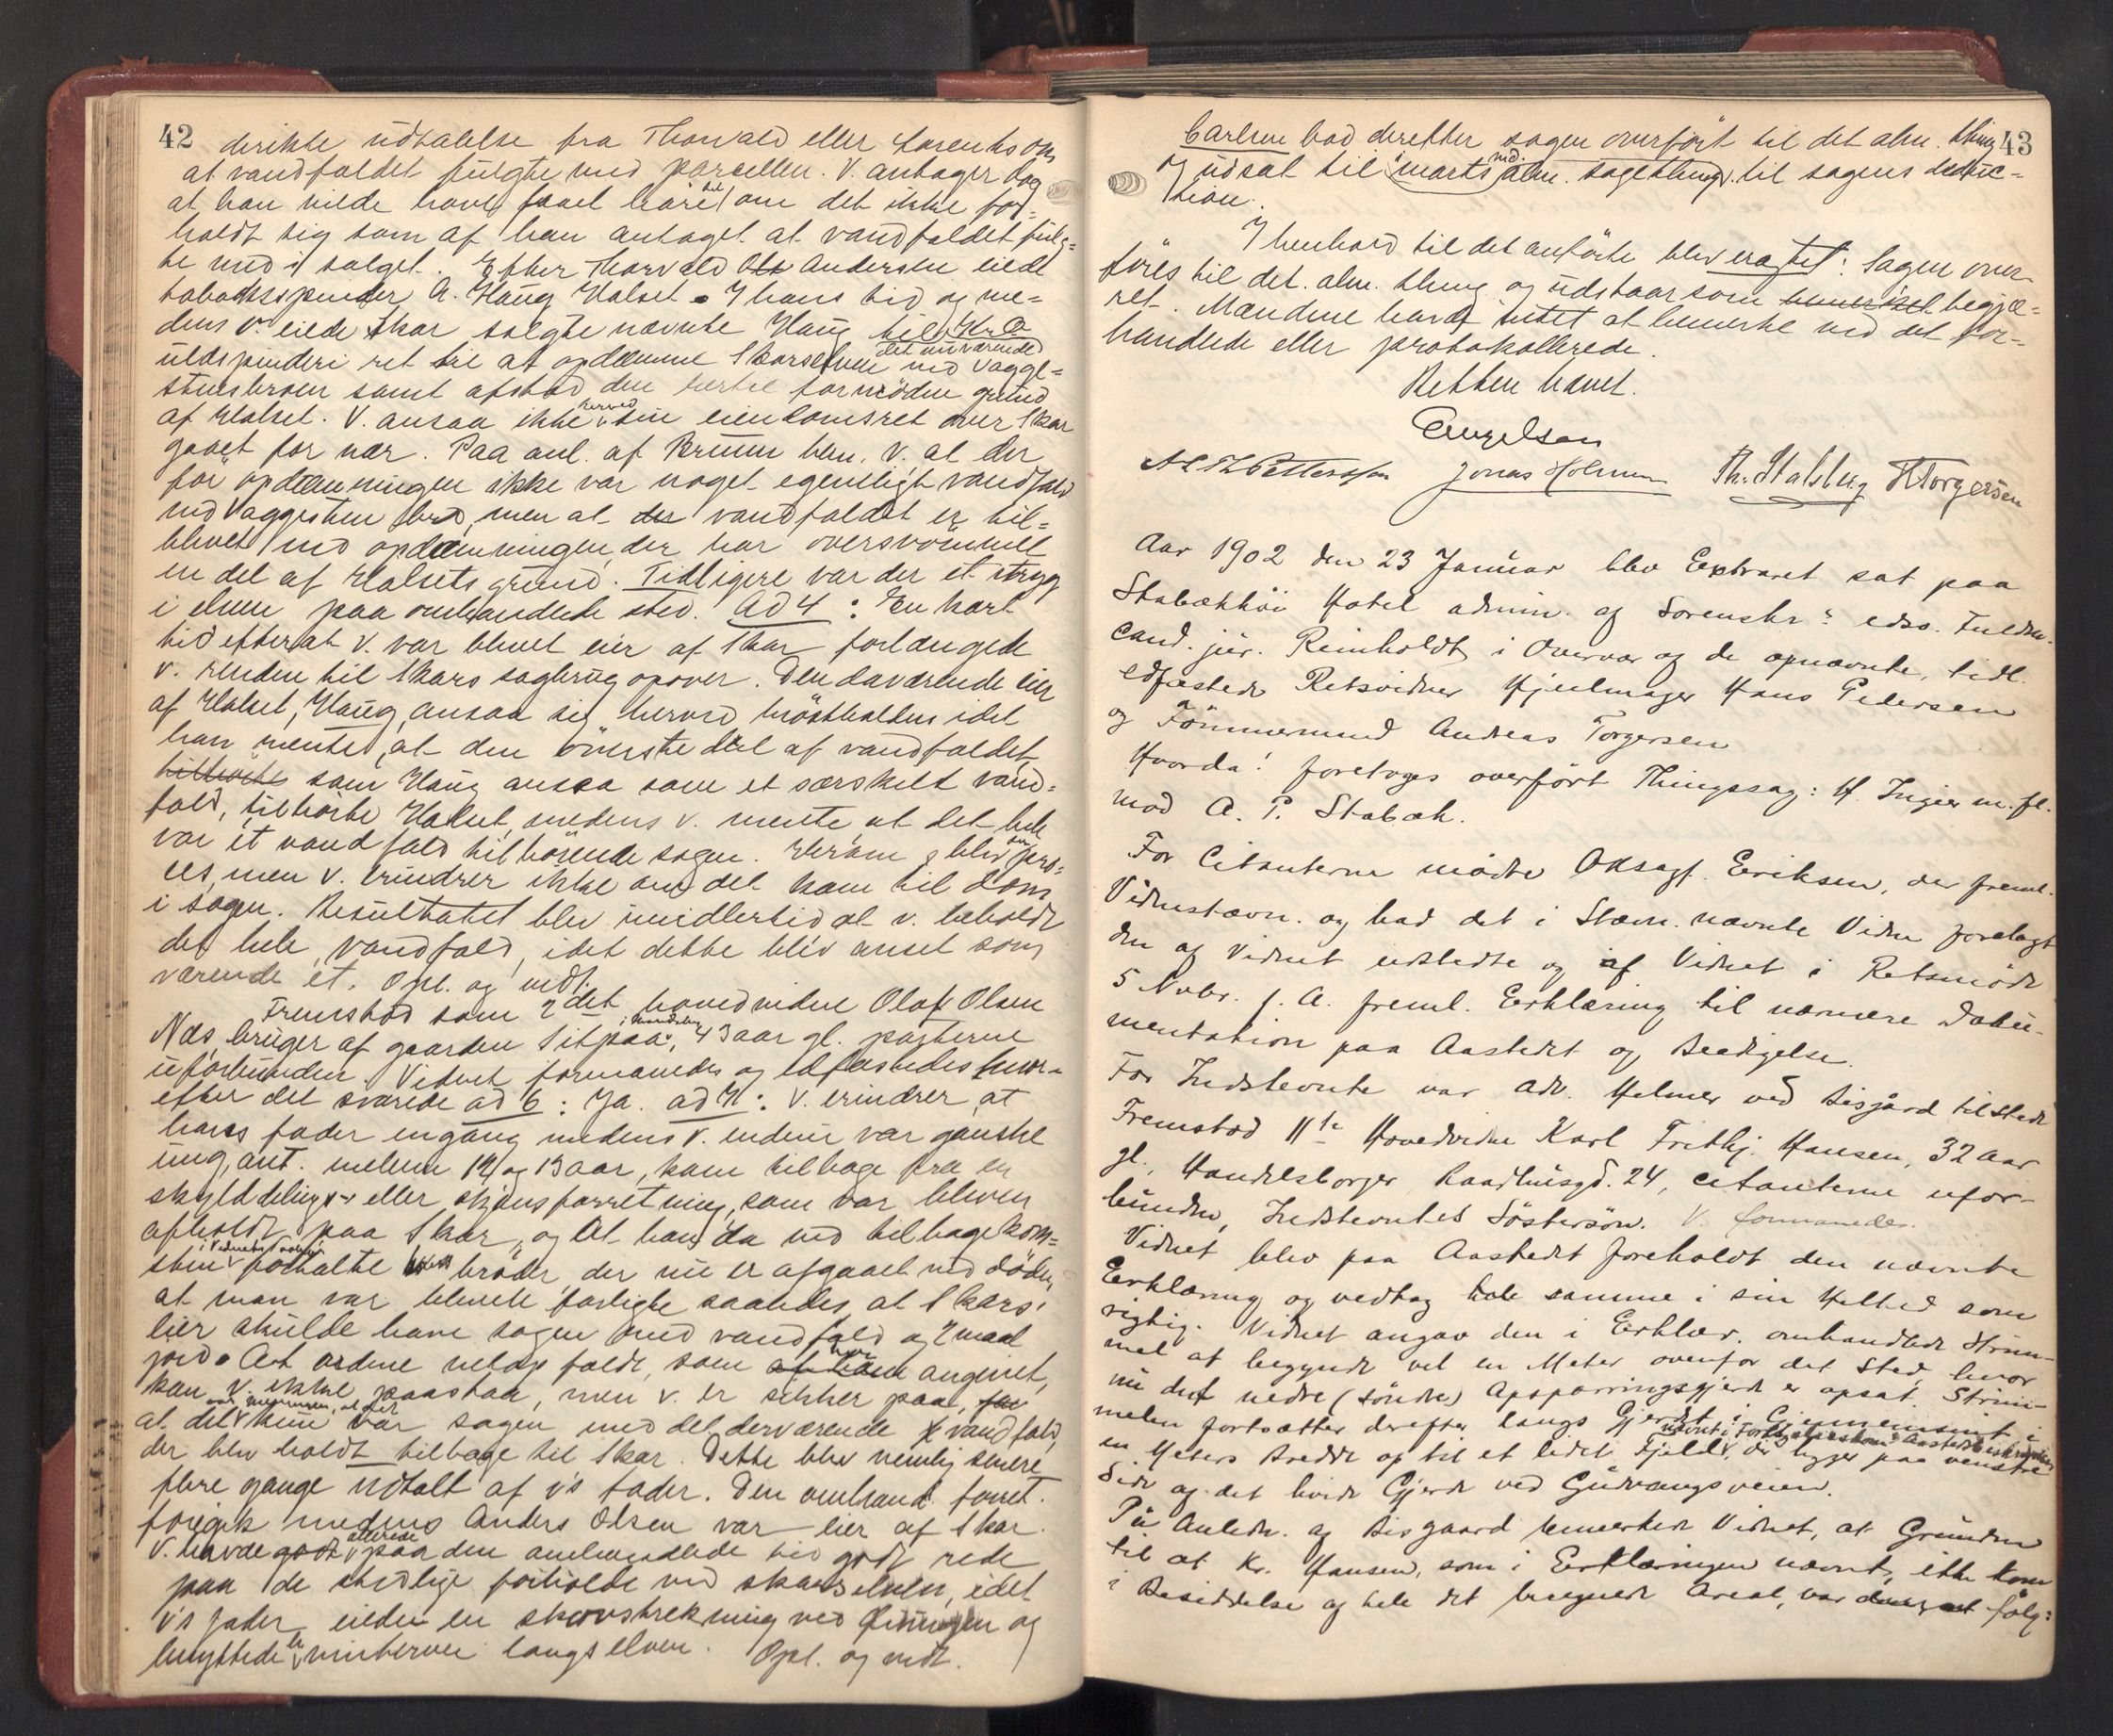 42
direkte udtalelse fra Thorvald eller Lorentz om
at vandfaldet fulgte med parcellen. V. antager dog
at han vilde have faaet høre det om det ikke for-
holdt sig som af han antaget at vandfaldet fulg-
te med i salget. Efter Thorvald Andersen eiede
tobaksspinder A. Haug Halset. I hans tid og me-
dens v. eiede Skar solgte nævnte Haug til
det nuværende
uldspinderi ret til at opdæmme Skarselven ved Vagge-
stensbroen samt afstod den hertil fornødne grund
af Halset. V. ansaa ikke herved sin eiendomsret over Skar
gaaet for nær. Paa anl. af Bruun bem. v. at der
før opdæmningen ikke var noget egentligt vandfald
ved Vaggesten bro, men at vandfaldet er til-
blevet ved opdæmningen, der har oversvømmet
en del af Halsets grund. Tidligere var der et stryg
i elven paa omhandlede sted. Ad 4: En kort
tid efter at v. var blevet eier af Skar forlængede
v. renden til Skars sagbrug opover. Den daværende eier
af Halset, Haug, ansaa sig herved brøstholden idet
han mente, at den øverste del af vandfaldet,
tilhørte som Haug ansaa som et særskilt vand-
fald, tilhørte Halset, medens v. mente at det hele
var et vandfald tilhørende sagen. Herom blev pro-
ces, men v. erindrer ikke om det kom til dom
i sagen. Resultatet blev imidlertid at v. beholdt
det hele vandfald, idet dette blev anset som
værende et. Opl. og vedt.
Fremstod som 2det hovedvidne Olaf Olsen
Næs, bruger af gaarden Sitpaa, 43 aar gl. parterne
uforbunden. Vidnet formanedes og edfæstedes hvor-
efter det svarede ad 6: Ja. ad 7: V. erindrer, at
hans fader engang medens v. endnu var ganske
ung, ant. mellem 12 og 13 aar, kom tilbage fra en
skylddelings- eller skjønsforretning, som var bleven
afholdt paa Skar, og at han da ved tilbagekom-
sten i vidnets paahør fortalte brødr, der nu er afgaaet ved døden,
at man var blevet forligte saaledes, at Skars
eier skulde have sagen med vandfald og 2 maal
jord. At ordene netop faldt, som angivet,
kan v. ikke paastaa, men v. er sikker paa,
at det kun var sagen med det derværende vandfald,
der blev holdt tilbage til Skar. Dette blev nemlig senere
flere gange udtalt af v's fader. Den omhand. forret.
foregik medens Anders Olsen var eier af Skar.
V. havde allerede paa den omhandlede tid godt rede
paa de stedlige forholde ved Skarselven, idet
v's fader eiede en skovstrekning ved og
benyttede vinterveie langs elven. Opl. og vedt.
43
Carlsen bad derefter sagen overført til det alm. thing
og udsat til marts alm. sagething til sagens deduc-
tion.
I henhold til det anførte blev eragtet: Sagen over-
føres til det alm. thing og udstaar som begjæ-
ret. Mændene havde intet at bemerke ved det for-
handlede eller protokollerede.
Retten hævet.
Engelsen
Pettersson Jonas Holmen Th. Stalsberg H Torgersen
Aar 1902 den 23 Januar blev Extraret sat paa
Stabækhøi Hotel admin. af Sorenskr's edsv. Fuldm.
cand. jur. Reinholdt i Overvær af de opnævnte, tidl.
edfæstede Retsvidner Hjulmager Hans Pedersen
og Tømmermand Andreas Torgersen
Hvorda! foretoges overført Thingssag: H. Ingier m. fl.
mod A. P. Stabæk.
For Citanterne mødte Oksagf. Eriksen, der freml.
Vidnestævn. og bad det i Stævn. nævnte Vidne forelagt
den af Vidnet udstedte og af Vidnet i Retsmøde
5 Novbr. f. A. freml. Erklæring til nærmere Doku-
mentation paa Aastedet og Beedigelse.
For Indstevnte var adv. Helmer ved Bisgård tilstede
Fremstod 11te Hovedvidne Karl Frithj. Hansen, 32 Aar
gl., Handelsborger Raadhusgd. 24, Citanterne ufor-
bunden, Indstevntes Søstersøn. V. formanedes.
Vidnet blev paa Aastedet foreholdt den nævnte
Erklæring og vedtog hele samme i sin Helhed som
rigtig. Vidnet angav den i Erklær. omhandlede Strim-
mel at begynde vel en Meter ovenfor det Sted, hvor
nu det nedre (søndre) Afsparringsgjerde er opsat. Strim-
melen fortsætter derefter langs Gjerdet i Gjennemsnit i
en Meters Bredde op til et lidet Fjeld, der ligger paa venstre
Side af det hvide Gjerde ved Gudvangsveien.
På Anledn. af Bisgaard bemerkede Vidnet, at Grunden
til at Kr. Hansen, som i Erklæringen nævnt, ikke kom
i Besiddelse af hele det beregnede Areal, var følg: